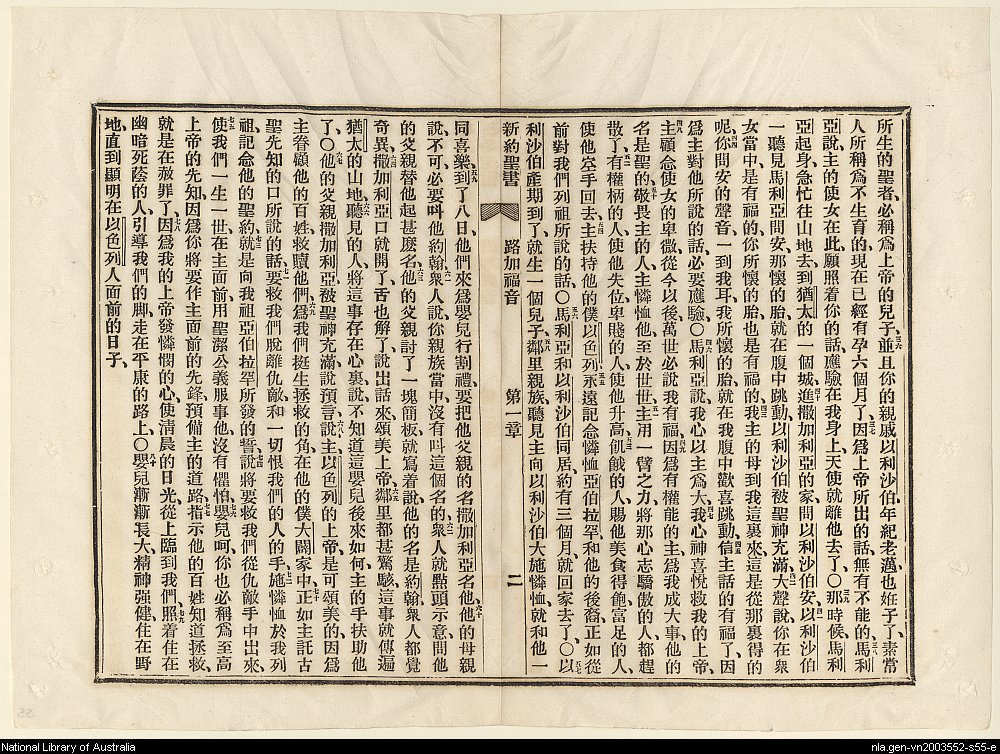 所生的聖者、必稱爲上帝的兒子、三六並且你的親戚以利沙伯、年紀老邁也妊子了、素常
人所稱爲不生育的現在已經有孕六個月了、三七因爲上帝所出的話、無有不能的、三八馬利
亞說主的使女在此願照着你的話應驗在我身上、天使就離他去了、○三九那時候、馬利
亞起身、急忙往山地去到猶太的一個城、四十進撒加利亞的家問以利沙伯安、四一以利沙伯
一聽見馬利亞問安那懷的胎就在腹中跳動、以利沙伯被聖神充滿、四二大聲說你在衆
女當中是有福的、你所懷的胎也是有福的、四三我主的母到我這裏來、這是從那裏得的
呢、四四你問安的聲音、一到我耳、我所懷的胎就在我腹中歡喜跳動、四五信主話的有福了、因
爲主對他所說的話、必要應驗、○四六馬利亞說、我心以主爲大、四七我心神喜悅救我的上帝、
四八主顧念使女的卑微、從今以後萬世必說我有福、四九因爲有權能的主爲我成大事他的
名是聖的、五十敬畏主的人、主憐恤他、至於世世、五一主用一臂之力、將那心志驕傲的人都趕
散了、五二有權柄的人、使他失位、卑賤的人、使他升高、五三飢餓的人賜他美食得飽富足的人、
使他空手回去、五四主扶持他的僕以色列、五五永遠記念憐恤亞伯拉罕和他的後裔、正如從
前對我們列祖所說的話、○五六馬利亞和以利沙伯同居、約有三個月、就回家去了、○五七以
利沙伯產期到了、就生一個兒子、五八鄰里親族聽見主向以利沙伯大施憐恤、就和他一
新約聖書 路加福音 第一章 二
同喜樂、五九到了八日、他們來爲嬰兒行割禮、要把他父親的名撒加利亞名他、六十他的母親
說、不可、必要叫他約翰、六一衆人說你親族當中沒有叫這個名的、六二衆人就點頭示意問他
的父親替他起甚麽名、六三他的父親討了一塊簡板、就寫着說他的名是約翰、衆人都覺
奇異、六四撒加利亞口就開了、舌也解了、說出話來、頌美上帝、六五鄰里都甚驚駭這事就傳遍
猶太的山地、六六聽見的人將這事存在心裏說、不知道這嬰兒後來如何、主的手扶助他
了、○六七他的父親撒加利亞被聖神充滿、說預言說、六八主以色列的上帝、是可頌美的、因爲
主眷顧他的百姓、救贖他們、六九爲我們挺生拯救的角、在他的僕大闢家中、七十正如主託古
聖先知的口所說的話、七一要救我們脫離仇敵、和一切恨我們的人的手、七二施憐恤於我列
祖、記念他的聖約、七三就是向我祖亞伯拉罕所發的誓、七四說將要救我們從仇敵手中出來、
七五使我們一生一世、在主面前、用聖潔公義服事他、沒有懼怕、七六嬰兒呵、你也必稱爲至高
上帝的先知、因爲你將要作主面前的先鋒、預備主的道路、七七指示他的百姓知道拯救、
就是在赦罪了、七八因爲我的上帝發憐憫的心、使淸晨的日光、從上臨到我們、七九照着住在
幽暗死蔭的人、引導我們的脚、走在平康的路上、○八十嬰兒漸漸長大、精神强健、住在野
地、直到顯明在以色列人面前的日子、
National Library of Australia
nla.gen-vn2003552-s55-e